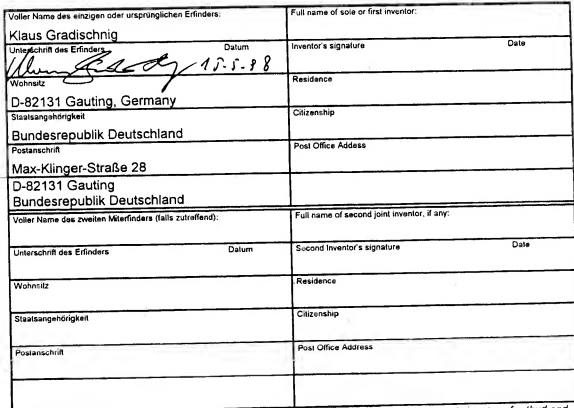 Voller Name des einzigen oder ursprünglichen Erfinders:
Full name of sole or first inventor:
Klaus Gradischnig
Unterschrift des Erfinders Datum
Inventor's signature Date
15-5-98
Wohnsitz
Residence
D-82131 Gauting, Germany
Staatsangehörigkeit
Citizenship
Bundesrepublik Deutschland
Postanschrift
Post Office Addess
Max-Klinger-Straße 28
D-82131 Gauting
Bundesrepublik Deutschland
Voller Name des zweiten Miterfinders (falls zutreffend):
Full name of second joint inventor, if any:
Unterschrift des Erfinders Datum
Second Inventor's signature Date
Wohnsitz
Residence
Staatsangehörigkeit
Citizenship
Postanschrift
Post Office Address